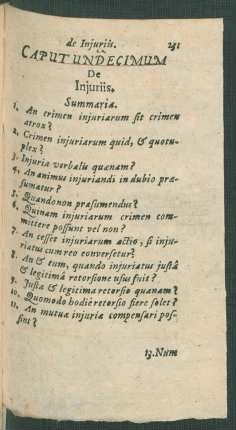 de Injuriis. 231
CAPUT UNDECIMUM
De
Injuriis.
Summaria.
1. An crimen injuriarum sit crimen
atrox?
2. Crimen injuriarum quid, & quotu-
plex?
3. Injuria verbalis quænam?
4. An animus injuriandi in dubio præ-
sumatur?
5. Quando non præsumendus?
6. Quinam injuriarum crimen com-
mittere possunt vel non?
7. An cesset injuriarum actio, si inju-
riatus cum reo conversetur?
8. An & eum, quando injuriatus justâ
& legitimâ retorsione usus fuit?
9. Justa & legitima retorsio quænam?
10. Quomodo hodiè retorsio fieri solet?
11. An mutua injuria compensari pos-
sint?
13. Num